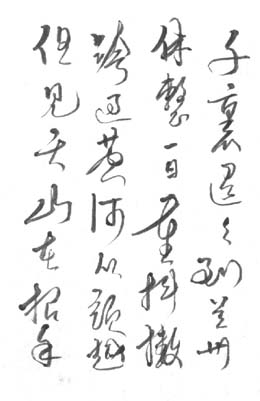 千裏迢々到兰州
休整一日重抖擞
跨过黄河从头越
但见天山在招手